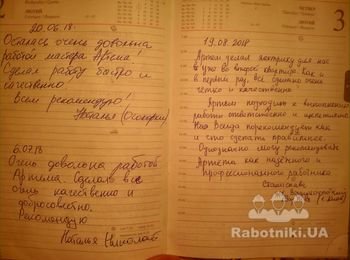 20.06.18.
Осталась очень довольна
работой мастера Артёма
Сделал работу быстро и
качественно.
Всем рекомендую!
Наталья
6.07.18
Очень довольна работой
Артёма. Сделал все
очень качественно и
добросовестно.
Рекомендую
Наталья
3
19.08.2018
Артем делал електрику для нас
уже во второй квартире. Как и
в первый раз, все сделано очень
четко и качественно.
Артем подходит к выполнению
работы ответственно и
Нас Всегда и как
и что сделать правильнее.
Однозначно могу рекомендовать
Артёма как надёжного и
профессионального работника
Станислава
Rabotniki.UA